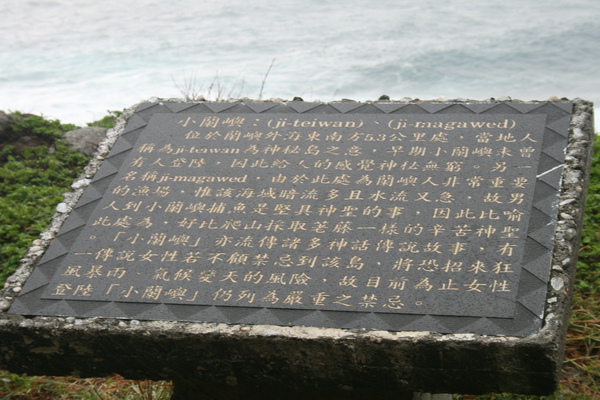 小蘭嶼：(ji-teiwan) (ji-magawed)
位於蘭嶼外海東南方5.3公里處，當地人
稱為ji-teiwan為神秘島之意，早期小蘭嶼未曾
有人登陸，因此給人的感覺神秘無窮。另一
名稱ji-magawed，由於此處為蘭嶼人非常重要
的漁場，惟該海域暗流多且水流又急，故男
人到小蘭嶼捕魚是堅具神聖的事，因此比喻
此處為，好比爬山採取著藤一樣的辛苦神聖
。「小蘭嶼」亦流傳諸多神話傳說故事，有
一傳說女性若不顧禁忌到該島，將恐招來狂
風暴雨，氣候變天的風險，故目前為止女性
登陸「小蘭嶼」仍列為嚴重之禁忌。